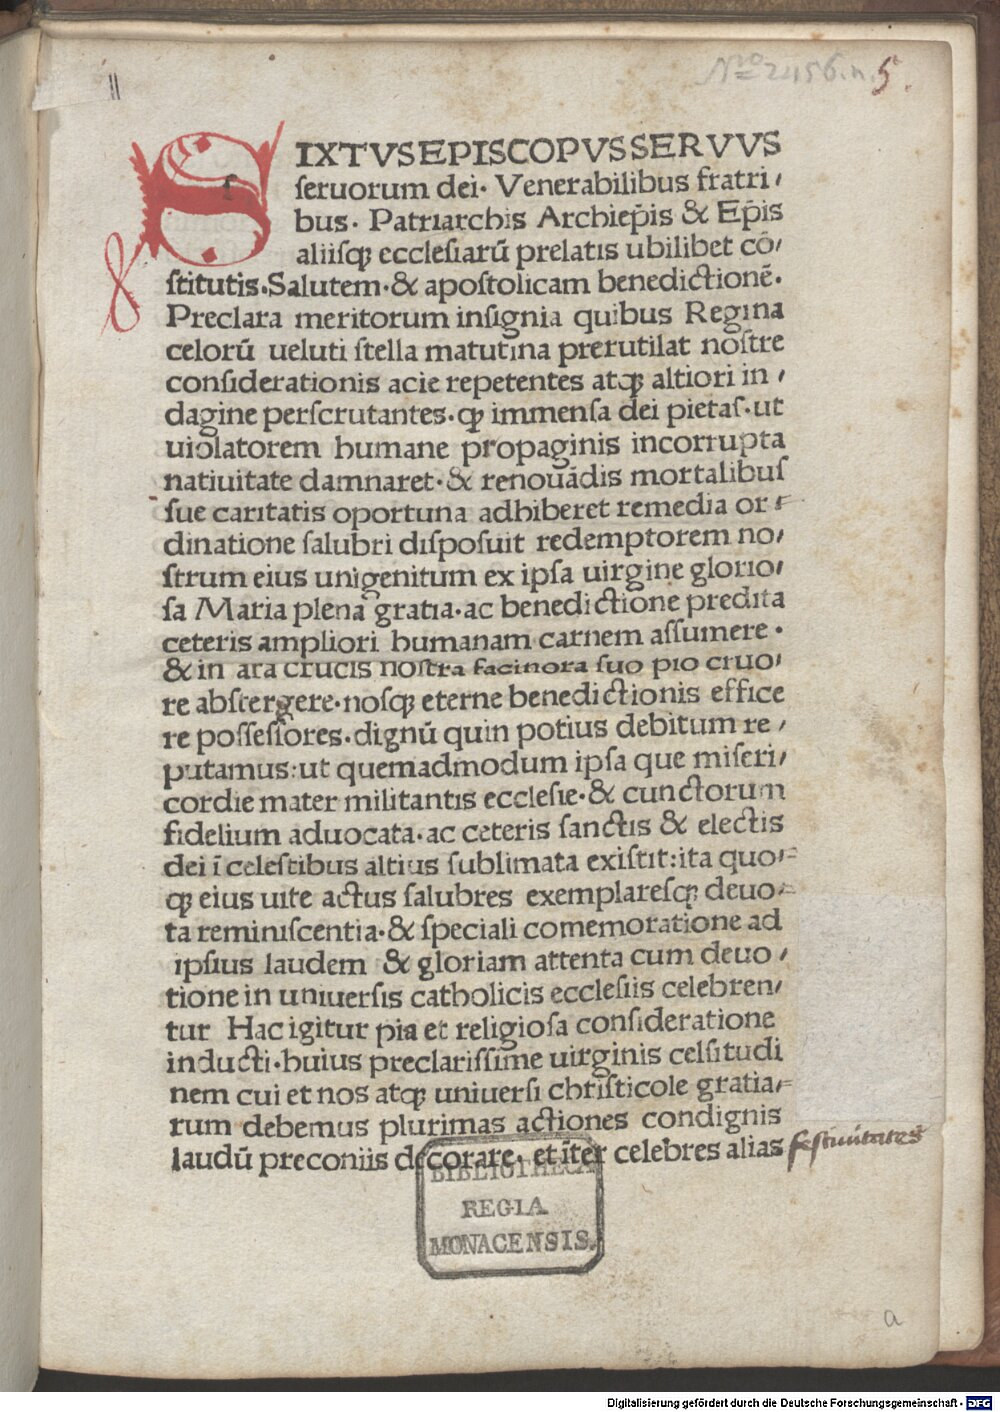 Nro 2456. n. 5.
SIXTVS EPISCOPVS SERVVS
ſeruorum dei· Venerabilibus fratri⸗
bus· Patriarchis Archiep̄is & Ep̄is
aliiſqꝫ eccleſiarū prelatis ubilibet cō⸗
ſtitutis·Salutem·& apoſtolicam benedictionē·
Preclara meritorum inſignia quibus Regina
celorū ueluti ſtella matutina prerutilat noſtre
conſiderationis acie repetentes atqꝫ altiori in⸗
dagine perſcrutantes·qꝫ immenſa dei pietaſ·ut
uiolatorem humane propaginis incorrupta
natiuitate damnaret·& renouādis mortalibuſ
ſue caritatis oportuna adhiberet remedia or⸗
dinatione ſalubri diſpoſuit redemptorem no⸗
ſtrum eius unigenitum ex ipſa uirgine glorio⸗
ſa Maria plena gratia·ac benedictione predita
ceteris ampliori humanam carnem aſſumere·
& in ara crucis noſtra facinora ſuo pio cruo⸗
re abſtergere·noſqꝫ eterne benedictionis effice
re poſſeſſores·dignū quin potius debitum re⸗
putamus:ut quemadmodum ipſa que miſeri⸗
cordie mater militantis eccleſie·& cunctorum
fidelium aduocata·ac ceteris ſanctis & electis
dei ī celeſtibus altius ſublimata exiſtit:ita quo⸗
qꝫ eius uite actus ſalubres exemplareſqꝫ deuo⸗
ta reminiſcentia·& ſpeciali comemoratione ad
ipſius laudem & gloriam attenta cum deuo⸗
tione in uniuerſis catholicis eccleſiis celebren⸗
tur Hac igitur pia et religioſa conſideratione
inducti·huius preclariſſime uirginis celſitudi
nem cui et nos atqꝫ uniuerſi chriſticole gratia⸗
rum debemus plurimas actiones condignis
laudū preconiis decorare· et īter celebres alias feſtiuitates
BIBLIOTHECA
REGIA
MONACENSIS.
a
Digitalisierung gefördert durch die Deutsche Forschungsgemeinschaft - DFG